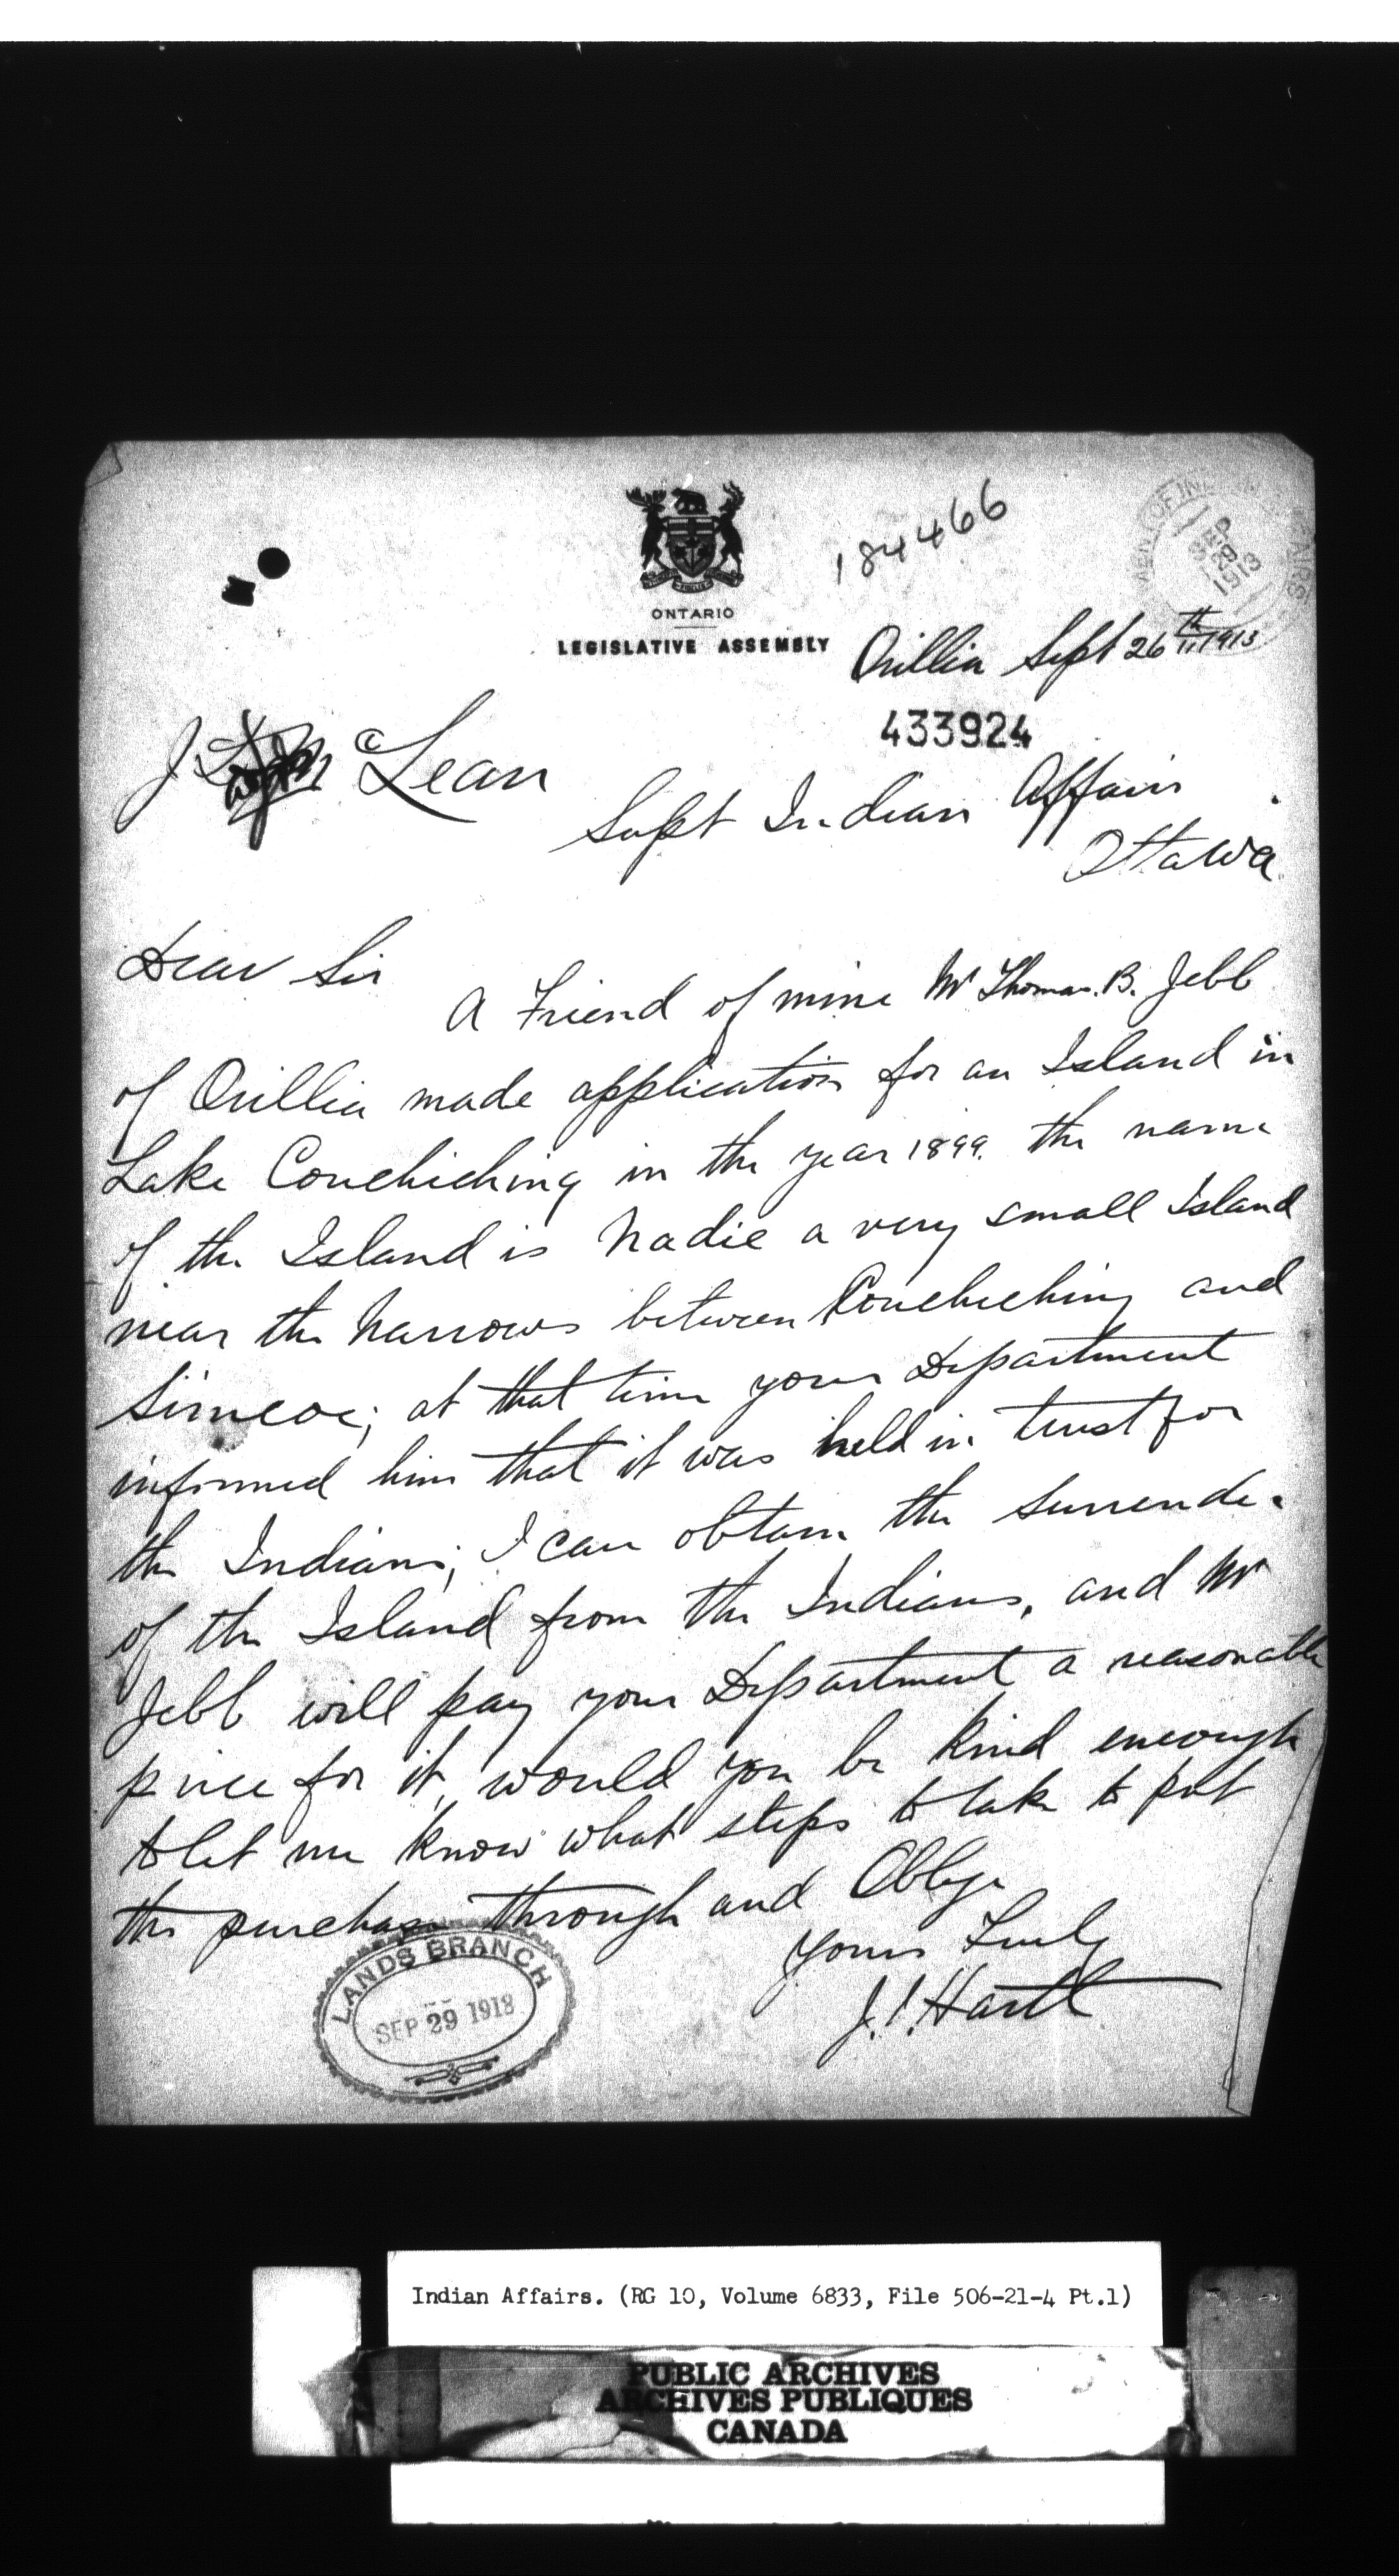 184466
DEPARTMENT OF INDIAN AFFAIRS
SEP
29
1913
ONTARIO
LEGISLATIVE ASSEMBLY
Orillia Sept 26th 1913
433924
J D McLean
Supt Indian Affairs
Ottawa.
Dear Sir
A Friend of mine Mr Thomas. B. Jebb
of Orillia made application for an Island in
Lake Couchiching in the year 1899. the name
of the Island is Nadie a very small Island
near the Narrows between Couchiching and
Simcoe; at that time your Department
informed him that it was held in trust for
the Indians; I can obtain the surrender
of the Island from the Indians, and Mr
Jebb will pay your Department a reasonable
price for it, would you be kind enough
to let me know what steps to take to put
the purchase through and Oblige
Yours Truly
J. I. Hartt
LANDS BRANCH
SEP 29 1913
Indian Affairs. (RG 10, Volume 6833, File 506-21-4 Pt.1)
PUBLIC ARCHIVES
ARCHIVES PUBLIQUES
CANADA